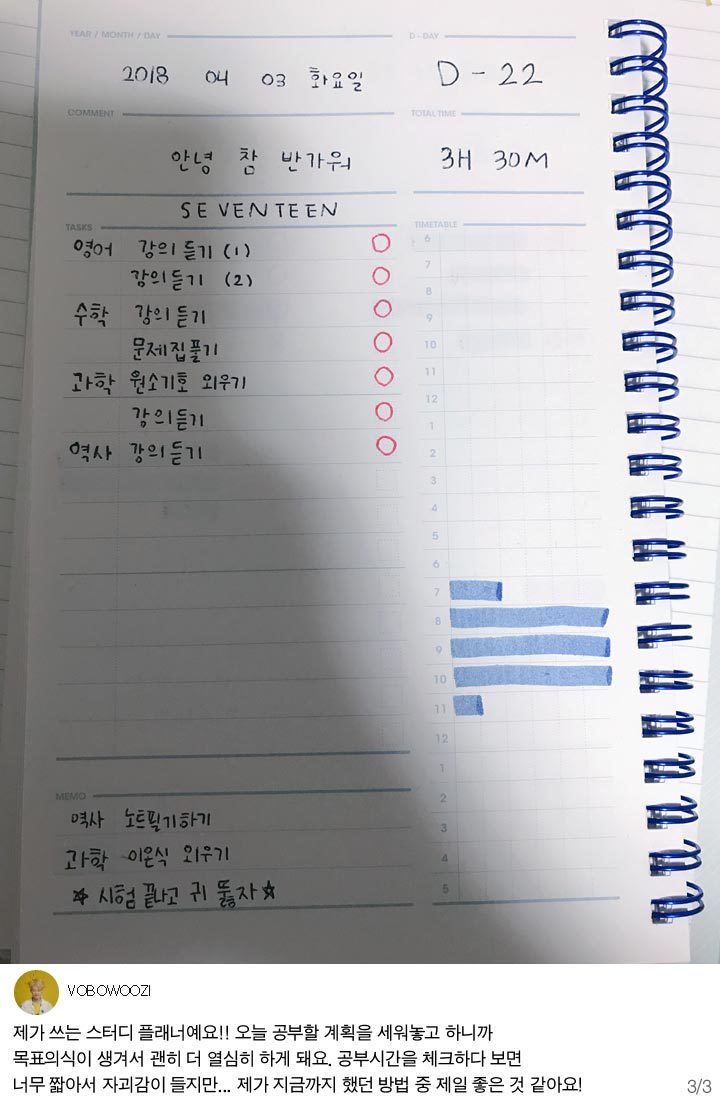 YEAR / MONTH / DAY
D - DAY
2018 04 03 화요일
D - 22
COMMENT
TOTAL TIME
안녕 참 반가워
3H 30M
SEVENTEEN
TASKS
TIMETABLE
영어 강의 듣기 (1)
강의 듣기 (2)
수학 강의 듣기
문제집풀기
과학 원소기호 외우기
강의 듣기
역사 강의 듣기
6
7
8
9
10
11
12
1
2
3
4
5
6
7
8
9
10
11
12
1
2
3
4
5
MEMO
역사 노트필기하기
과학 이온식 외우기
☆ 시험 끝나고 귀 뚫자 ☆
VOBOWOOZI
제가 쓰는 스터디 플래너예요!! 오늘 공부할 계획을 세워놓고 하니까
목표의식이 생겨서 괜히 더 열심히 하게 돼요. 공부시간을 체크하다 보면
너무 짧아서 자괴감이 들지만... 제가 지금까지 했던 방법 중 제일 좋은 것 같아요!
3/3